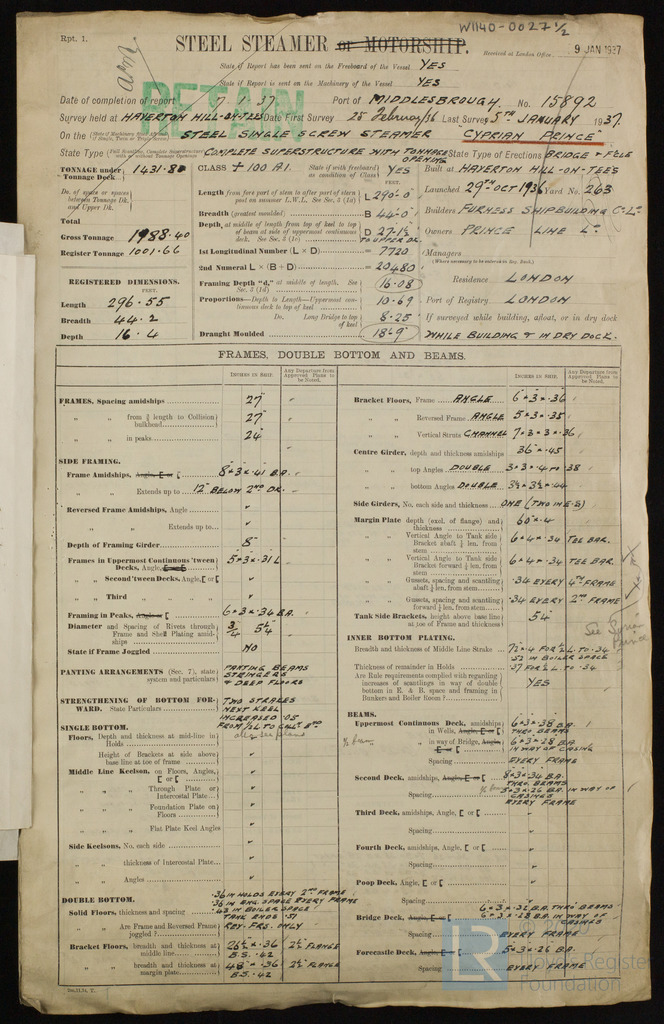 W1140-0027 1/2
Rpt. 1.
STEEL STEAMER or MOTORSHIP.
Received at London Office 9 JAN 1937
State if Report has been sent on the Freeboard of the Vessel YES
State if Report is sent on the Machinery of the Vessel YES
RETAIN
RETAIN
Date of completion of report 7.1.37 Port of MIDDLESBROUGH No. 15892
Survey held at HAVERTON HILL-ON-TEES Date First Survey 28 February 36 Last Survey 5TH JANUARY 1937
On the STEEL SINGLE SCREW STEAMER "CYPRIAN PRINCE"
State Type COMPLETE SUPERSTRUCTURE WITH TONNAGE OPENING State Type of Erections BRIDGE & F'CLE
TONNAGE under Tonnage Deck 1431.80
CLASS + 100 A1. State if with freeboard as condition of Class YES
Built at HAVERTON HILL-ON-TEES
Do. of space or spaces between Tonnage Dk. and Upper Dk.
Total
Gross Tonnage 1988.40
Register Tonnage 1001.66
FEET.
Length from fore part of stem to after part of stern post on summer L.W.L. See Sec. 3 (1a) L 290'-0"
Breadth (greatest moulded) B 44'-0"
Depth, at middle of length from top of keel to top of beam at side of uppermost continuous deck. See Sec. 3 (1c) D 27'-1½ TO UPPER DK.
1st Longitudinal Number (L × D) = 7720
2nd Numeral L × (B + D) = 20480
Framing Depth "d," at middle of length. See Sec. 3 (1d) 16.08
Proportions—Depth to Length—Uppermost continuous deck to top of keel 10.69
Do. Long Bridge to top of keel 8.25
Draught Moulded 18.9
Launched 29TH OCT 1936 Yard No. 263
Builders FURNESS SHIPBUILDING Co Ld.
Owners PRINCE LINE Ld.
Managers
(Where necessary to be entered in Reg. Book.)
Residence LONDON
Port of Registry LONDON
If surveyed while building, afloat, or in dry dock
WHILE BUILDING & IN DRY DOCK.
REGISTERED DIMENSIONS.
FEET.
Length 296.55
Breadth 44.2
Depth 16.4
FRAMES, DOUBLE BOTTOM AND BEAMS.
INCHES IN SHIP. Any Departure from Approved Plans to be Noted.
FRAMES, Spacing amidships 27"
" " from ⅗ length to Collision bulkhead 27"
" " in peaks 24"
SIDE FRAMING.
Frame Amidships, Angle, [ or [ 8 × 3 × .41 B.A.
" " Extends up to 12" BELOW 2ND DK.
Reversed Frame Amidships, Angle
" " Extends up to
Depth of Framing Girder 8"
Frames in Uppermost Continuous 'tween Decks, Angle, [ or [ 5 × 3 × .31 L
" " Second 'tween Decks, Angle, [ or [
" " Third " "
Framing in Peaks, Angle or [ 6 × 3 × .34 B.A.
Diameter and Spacing of Rivets through Frame and Shell Plating amidships 3/4 5¼
State if Frame Joggled NO
PANTING ARRANGEMENTS (Sec. 7), state system and particulars PANTING BEAMS STRINGERS & DEEP FLOORS
STRENGTHENING OF BOTTOM FORWARD. State Particulars TWO STRAKES NEXT KEEL INCREASED .05
SINGLE BOTTOM.
Floors, Depth and thickness at mid-line in Holds
" Height of Brackets at side above base line at toe of frame
Middle Line Keelson, on Floors, Angles, [ or [
" " Through Plate or Intercostal Plate
" " Foundation Plate on Floors
" " Flat Plate Keel Angles
Side Keelsons, No. each side
" " thickness of Intercostal Plate
" " Angles
DOUBLE BOTTOM.
Solid Floors, thickness and spacing .36 IN HOLDS EVERY 2ND FRAME .36 IN ENG. SPACE EVERY FRAME .43 IN BOILER SPACE TANK ENDS .51
" Are Frame and Reversed Frame joggled? REV. FRS. ONLY
Bracket Floors, breadth and thickness at middle line 26½ × .36 B.S. .42 2½" FLANGE
" " breadth and thickness at margin plate 48" × .36 B.S. .42 2½" FLANGE
INCHES IN SHIP. Any Departure from Approved Plans to be Noted.
Bracket Floors, Frame ANGLE 6 × 3 × .36
" " Reversed Frame ANGLE 5 × 3 × .35
" " Vertical Struts CHANNEL 7 × 3 × 3 × .36
Centre Girder, depth and thickness amidships 36 × .45
" " top Angles DOUBLE 3 × 3 × .4 TO .38
" " bottom Angles DOUBLE 3½ × 3½ × .44
Side Girders, No. each side and thickness ONE (TWO IN E.S)
Margin Plate depth (excl. of flange) and thickness 60 × .4
" " Vertical Angle to Tank side Bracket abaft ¼ len. from stem 6 × 4 × .34 TEE BAR.
" " Vertical Angle to Tank side Bracket forward ¼ len. from stem 6 × 4 × .34 TEE BAR.
" " Gussets, spacing and scantling abaft ¼ len. from stem .34 EVERY 4TH FRAME
" " Gussets, spacing and scantling forward ¼ len. from stem .34 EVERY 2ND FRAME
Tank Side Brackets, height above base line at toe of Frame and thickness 54
See Syrian Prince
INNER BOTTOM PLATING.
Breadth and thickness of Middle Line Strake 72 × .4 FOR ½L TO .34 .52 IN BOILER SPACE
Thickness of remainder in Holds .37 FOR ½L TO .34
Are Rule requirements complied with regarding increases of scantlings in way of double bottom in E. & B. space and framing in Bunkers and Boiler Room? YES
BEAMS.
Uppermost Continuous Deck, amidships in Wells, Angle, [ or [ 6 × 3 × .38 B.A. THRO. BEAMS
½ beam " in way of Bridge, Angle, [ or [ 6 × 3 × .28 B.A. IN WAY OF CASING
Spacing EVERY FRAME
Second Deck, amidships, Angle, [ or [ 8 × 3 × .34 B.A. THRO. BEAMS
½ beam 5 × 3 × .26 B.A. IN WAY OF CASINGS
Spacing EVERY FRAME
Third Deck, amidships, Angle, [ or [
Spacing
Fourth Deck, amidships, Angle, [ or [
Spacing
Poop Deck, Angle, [ or [
Spacing
Bridge Deck, Angle, [ or [ 6 × 3 × .32 B.A. THRO BEAMS 6 × 3 × .28 B.A. IN WAY OF CASINGS
Spacing EVERY FRAME
Forecastle Deck, Angle, [ or [ 5 × 3 × .26 B.A.
Spacing EVERY FRAME
LR
Lloyd's Register
Foundation